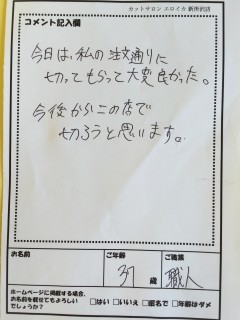 カットサロン エロイカ 新所沢店
コメント記入欄
今日は、私の注文通りに
切ってもらって大変良かった。
今後からこの店で
切ろうと思います。
お名前
ご年齢
ご職業
37 歳
職人
ホームページに掲載する場合、
お名前を載せてもよろしい
でしょうか?
□はい □いいえ □匿名で □年齢はダメ